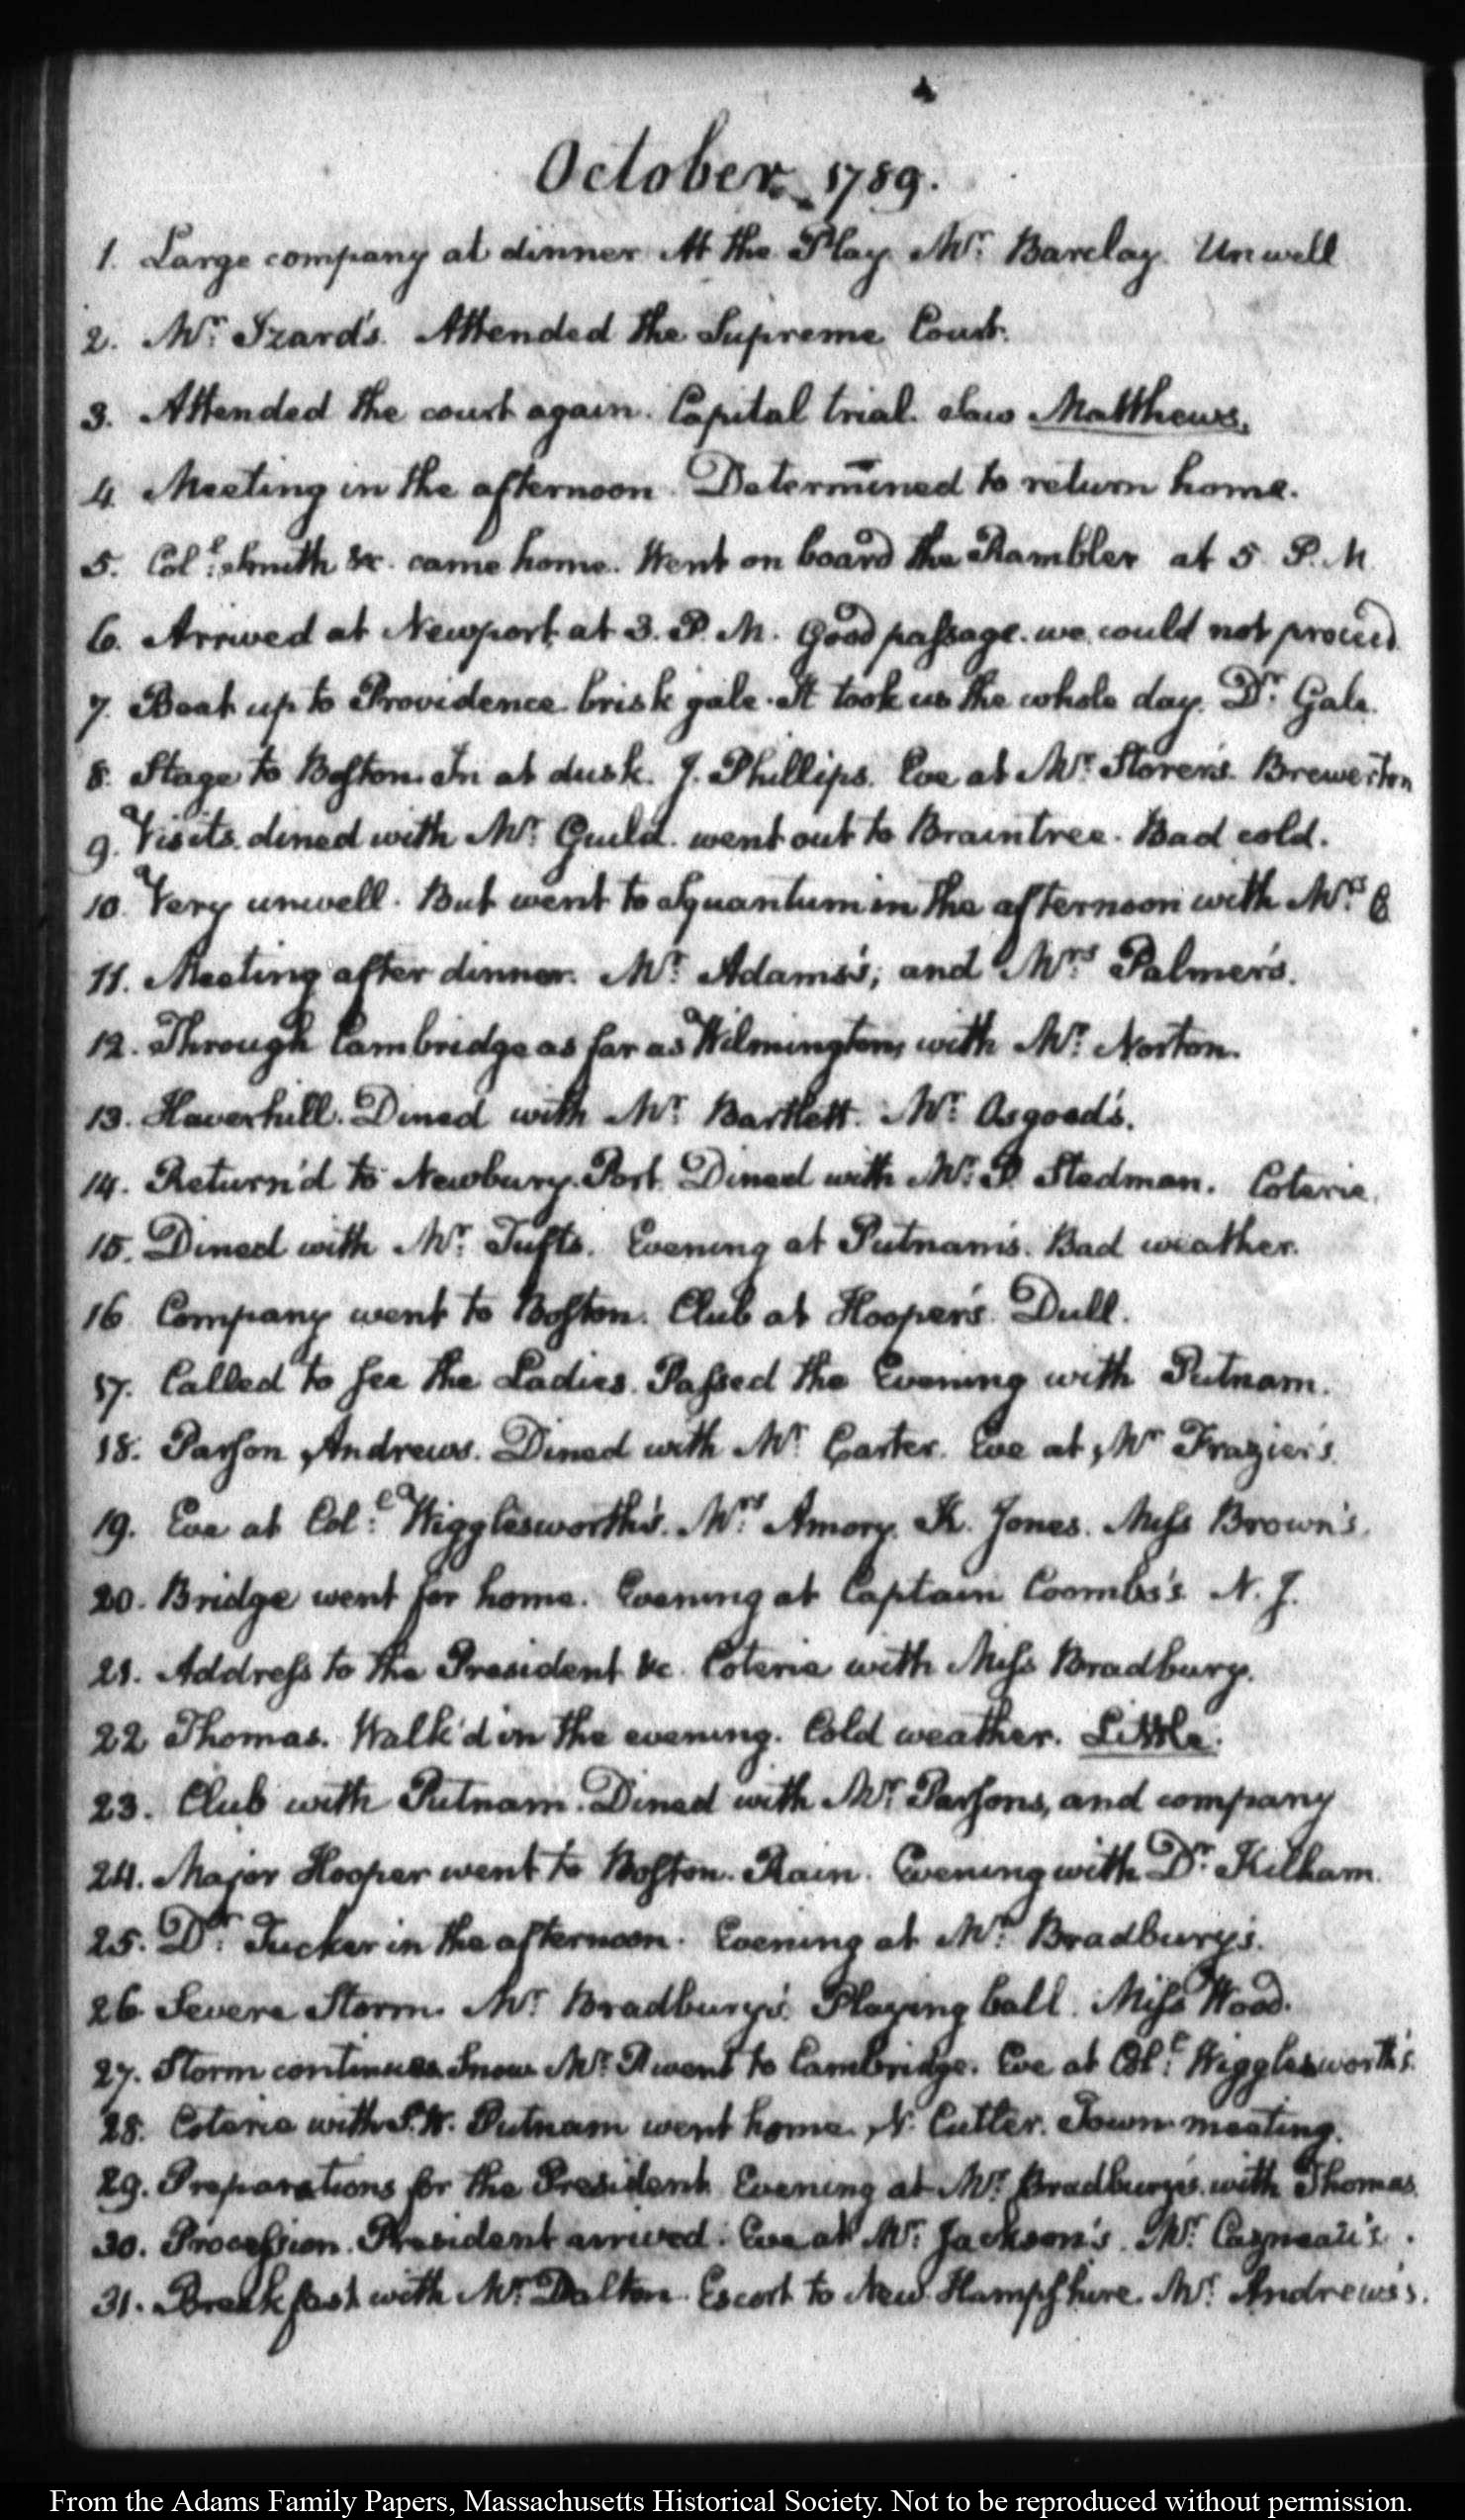 October 1789.
1. Large company at dinner At the Play Mr. Barclay. Unwell
2. Mr. Izard's. Attended the Supreme Court.
3. Attended the court again. Capital trial. saw Matthews.
4. Meeting in the afternoon. Determined to return home.
5. Coll. Smith &c. came home. Went on board the Rambler at 5 P.M.
6. Arrived at Newport at 3. P.M. Good passage. we could not proceed
7. Beat up to Providence brisk gale. It took us the whole day. Dr. Gale.
8. Stage to Boston. In at dusk. J. Phillips. Eve at Mr. Storer's. Brewerton
9. Visits. dined with Mr. Guild. went out to Braintree. Bad cold.
10. Very unwell. But went to Squantum in the afternoon with Mrs.
11. Meeting after dinner. Mr. Adams's, and Mrs. Palmer's.
12. Through Cambridge as far as Wilmington, with Mr. Norton.
13. Haverhill. Dined with Mr. Bartlett. Mr. Osgood's.
14. Return'd to Newbury-Port. Dined with Mr. Stedman. Coterie.
15. Dined with Mr. Tufts. Evening at Putnam's. Bad weather.
16 Company went to Boston. Club at Hooper's. Dull.
17. Called to see the Ladies. Passed the Evening with Putnam.
18. Parson Andrews. Dined with Mr. Carter. Eve at Mr Frazier's.
19. Eve at Coll. Wigglesworth's. Mrs. Amory. K. Jones. Miss Brown's.
20. Bridge went for home. Evening at Captain Coombs's. N. J.
21. Address to the President &c. Coterie with Miss Bradbury.
22 Thomas. Walk'd in the evening. Cold weather. Little.
23. Club with Putnam. Dined with Mr. Parsons, and company
24. Major Hooper went to Boston. Rain. Evening with Dr. Kilham.
25. Dr. Tucker in the afternoon. Evening at Mr. Bradbury's.
26 Severe Storm. Mr. Bradbury's. Playing ball. Miss Wood.
27. Storm continues. Snow. Mr. went to Cambridge. Eve at Coll. Wigglesworth's.
28. Coterie with S.W. Putnam went home. N. Cutler. Town-meeting.
29. Preparations for the President. Evening at Mr. Bradbury's. with Thomas.
30. Procession. President arrived. Eve at Mr. Jackson's. Mr. Cazneau's.
31. Breakfast with Mr. Dalton. Escort to New Hampshire. Mr. Andrews's.
From the Adams Family Papers, Massachusetts Historical Society. Not to be reproduced without permission.